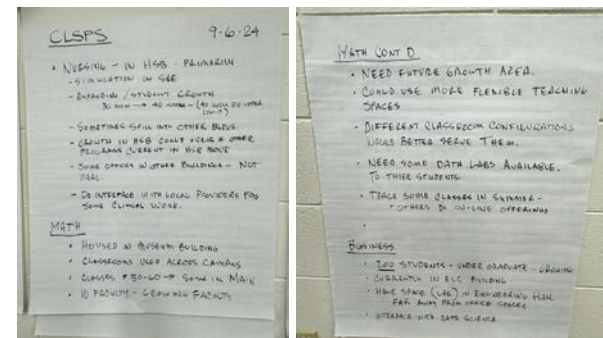 CLSPS 9.6.24
• NURSING - IN HSB - PRIMARILY
- SIMULATION IN SSE
- EXPANDING / STUDENT GROWTH
30 NOW → 40 (40 WOULD BE UPPER
LIMIT)
- SOMETIMES SPILL INTO OTHER BLDGS.
- GROWTH IN HSB COULD OTHER
PROGRAMS CURRENT IN HSB MOVE
- SOME OFFICES IN OTHER BUILDINGS - NOT
- DO INTERFACE WITH LOCAL PROVIDERS FOR
SOME CLINICAL WORK.
MATH
• HOUSED IN MUSEUM BUILDING
• CLASSROOMS USED ACROSS CAMPUS
• CLASSES 50-60 → SOME IN MAIN
• 10 FACULTY - GROWING FACULTY
MATH CONT D
• NEED FUTURE GROWTH AREA.
• COULD USE MORE FLEXIBLE TEACHING
SPACES
• DIFFERENT CLASSROOM CONFIGURATIONS
WOULD BETTER SERVE THEM.
• NEED SOME DATA LABS AVAILABLE.
TO THEIR STUDENTS
• TEACH SOME CLASSES IN SUMMER -
OTHERS DO ON-LINE OFFERINGS
•
BUSINESS
• 200 STUDENTS - UNDER GRADUATE - GROWING
• CURRENTLY IN ELC BUILDING
• HAVE SPACE (LAB) IN ENGINEERING HALL
FAR AWAY FROM OFFICE SPACES
• INTERFACE WITH DATA SCIENCE